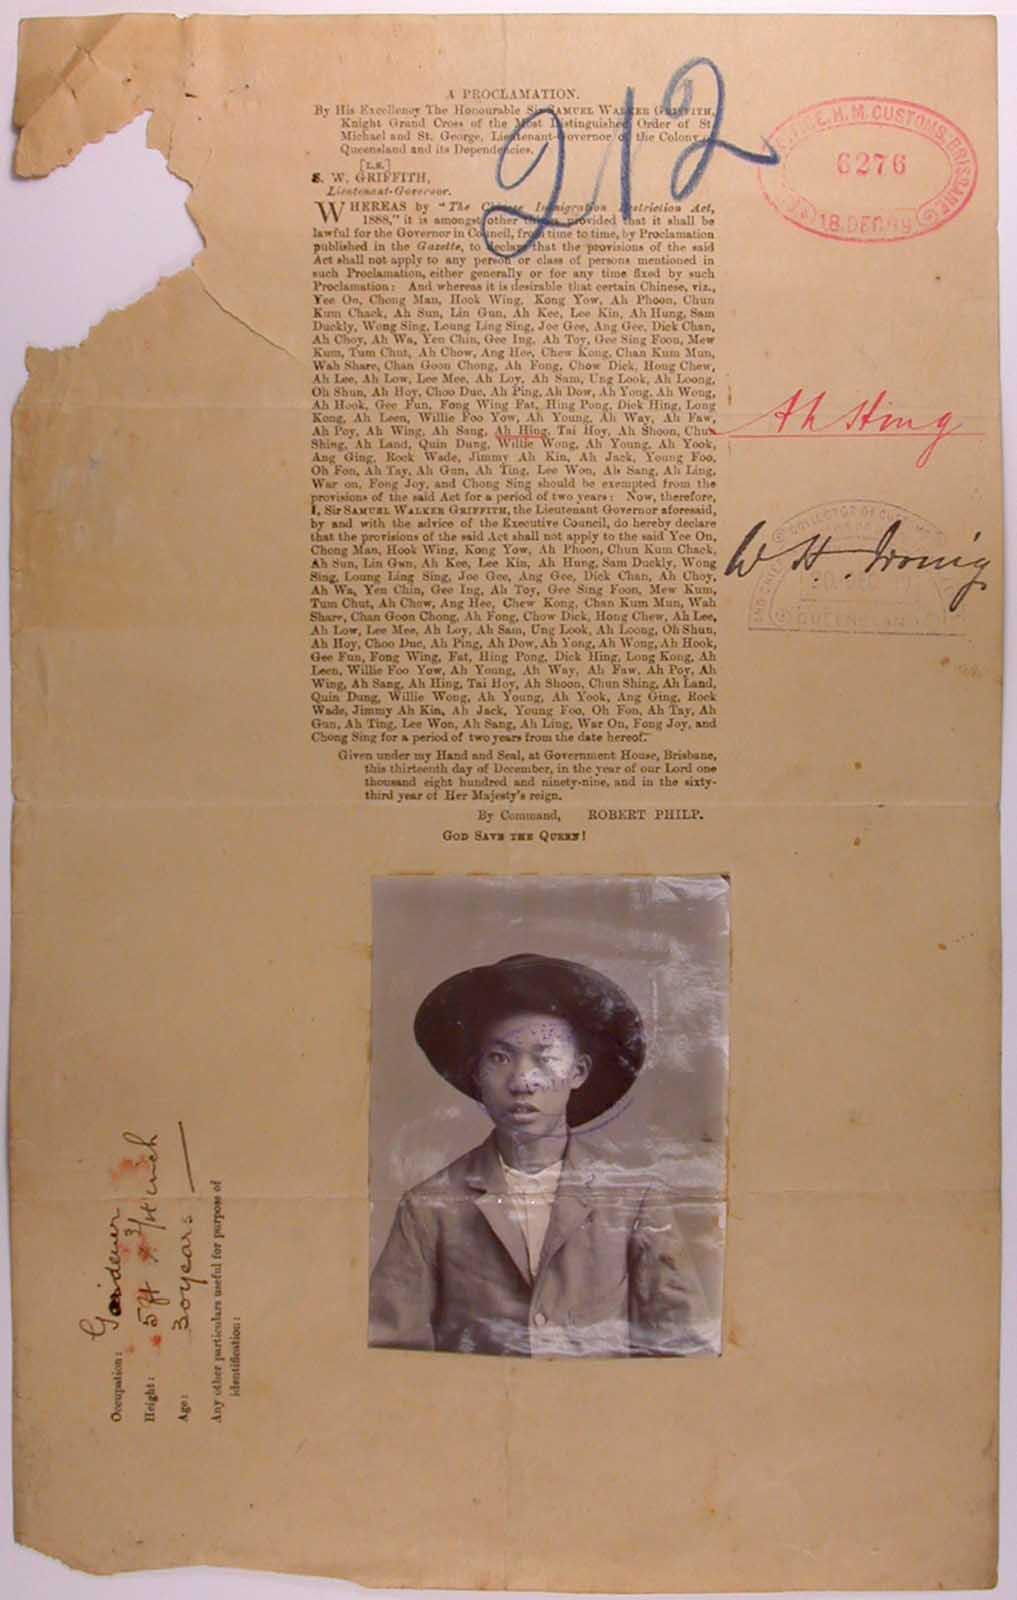 A PROCLAMATION.
By His Excellency The Honourable Sir SAMUEL WALKER GRIFFITH,
Knight Grand Cross of the Most Distinguished Order of St
Michael and St. George, Lieutenant-Governor of the Colony of
Queensland and its Dependencies.
[L.S.]
S. W. GRIFFITH,
Lieutenant-Governor.
WHEREAS by "The Chinese Immigration Restriction Act,
1888," it is amongst other things provided that it shall be
lawful for the Governor in Council, from time to time, by Proclamation
published in the Gazette, to declare that the provisions of the said
Act shall not apply to any person or class of persons mentioned in
such Proclamation, either generally or for any time fixed by such
Proclamation: And whereas it is desirable that certain Chinese, viz.,
Yee On, Chong Man, Hook Wing, Kong Yow, Ah Phoon, Chun
Kum Chack, Ah Sun, Lin Gun, Ah Kee, Lee Kin, Ah Hung, Sam
Duckly, Wong Sing, Loung Ling Sing, Joe Gee, Ang Gee, Dick Chan,
Ah Choy, Ah Wa, Yen Chin, Gee Ing, Ah Toy, Gee Sing Foon, Mew
Kum, Tum Chut, Ah Chow, Ang Hee, Chew Kong, Chan Kum Mun,
Wah Share, Chan Goon Chong, Ah Fong, Chow Dick, Hong Chew,
Ah Lee, Ah Low, Lee Mee, Ah Loy, Ah Sam, Ung Look, Ah Loong,
Oh Shun, Ah Hoy, Choo Duc, Ah Ping, Ah Dow, Ah Yong, Ah Wong,
Ah Hook, Gee Fun, Fong Wing Fat, Hing Pong, Dick Hing, Long
Kong, Ah Leen, Willie Foo Yow, Ah Young, Ah Way, Ah Faw,
Ah Poy, Ah Wing, Ah Sang, Ah Hing, Tai Hoy, Ah Shoon, Chun
Shing, Ah Land, Quin Dung, Willie Wong, Ah Young, Ah Yook,
Ang Ging, Rock Wade, Jimmy Ah Kin, Ah Jack, Young Foo,
Oh Fon, Ah Tay, Ah Gun, Ah Ting, Lee Won, Ah Sang, Ah Ling,
War on, Fong Joy, and Chong Sing should be exempted from the
provisions of the said Act for a period of two years: Now, therefore,
I, Sir SAMUEL WALKER GRIFFITH, the Lieutenant Governor aforesaid,
by and with the advice of the Executive Council, do hereby declare
that the provisions of the said Act shall not apply to the said Yee On,
Chong Man, Hook Wing, Kong Yow, Ah Phoon, Chun Kum Chack,
Ah Sun, Lin Gun, Ah Kee, Lee Kin, Ah Hung, Sam Duckly, Wong
Sing, Loung Ling Sing, Joe Gee, Ang Gee, Dick Chan, Ah Choy,
Ah Wa, Yen Chin, Gee Ing, Ah Toy, Gee Sing Foon, Mew Kum,
Tum Chut, Ah Chow, Ang Hee, Chew Kong, Chan Kum Mun, Wah
Share, Chan Goon Chong, Ah Fong, Chow Dick, Hong Chew, Ah Lee,
Ah Low, Lee Mee, Ah Loy, Ah Sam, Ung Look, Ah Loong, Oh Shun,
Ah Hoy, Choo Duc, Ah Ping, Ah Dow, Ah Yong, Ah Wong, Ah Hook,
Gee Fun, Fong Wing, Fat, Hing Pong, Dick Hing, Long Kong, Ah
Leen, Willie Foo Yow, Ah Young, Ah Way, Ah Faw, Ah Poy, Ah
Wing, Ah Sang, Ah Hing, Tai Hoy, Ah Shoon, Chun Shing, Ah Land,
Quin Dung, Willie Wong, Ah Young, Ah Yook, Ang Ging, Rock
Wade, Jimmy Ah Kin, Ah Jack, Young Foo, Oh Fon, Ah Tay, Ah
Gun, Ah Ting, Lee Won, Ah Sang, Ah Ling, War On, Fong Joy, and
Chong Sing for a period of two years from the date hereof.
Given under my Hand and Seal, at Government House, Brisbane,
this thirteenth day of December, in the year of our Lord one
thousand eight hundred and ninety-nine, and in the sixty-
third year of Her Majesty's reign.
By Command, ROBERT PHILP.
GOD SAVE THE QUEEN!
212
H.M. CUSTOMS. BRISBANE
6276
18. DEC. 99
Ah Hing
W. H. Irving
COLLECTOR OF CUSTOMS
QUEENSLAND
Occupation: Gardener
Height: 5 ft 3/4 inch
Age: 30 years
Any other particulars useful for purpose of
identification: